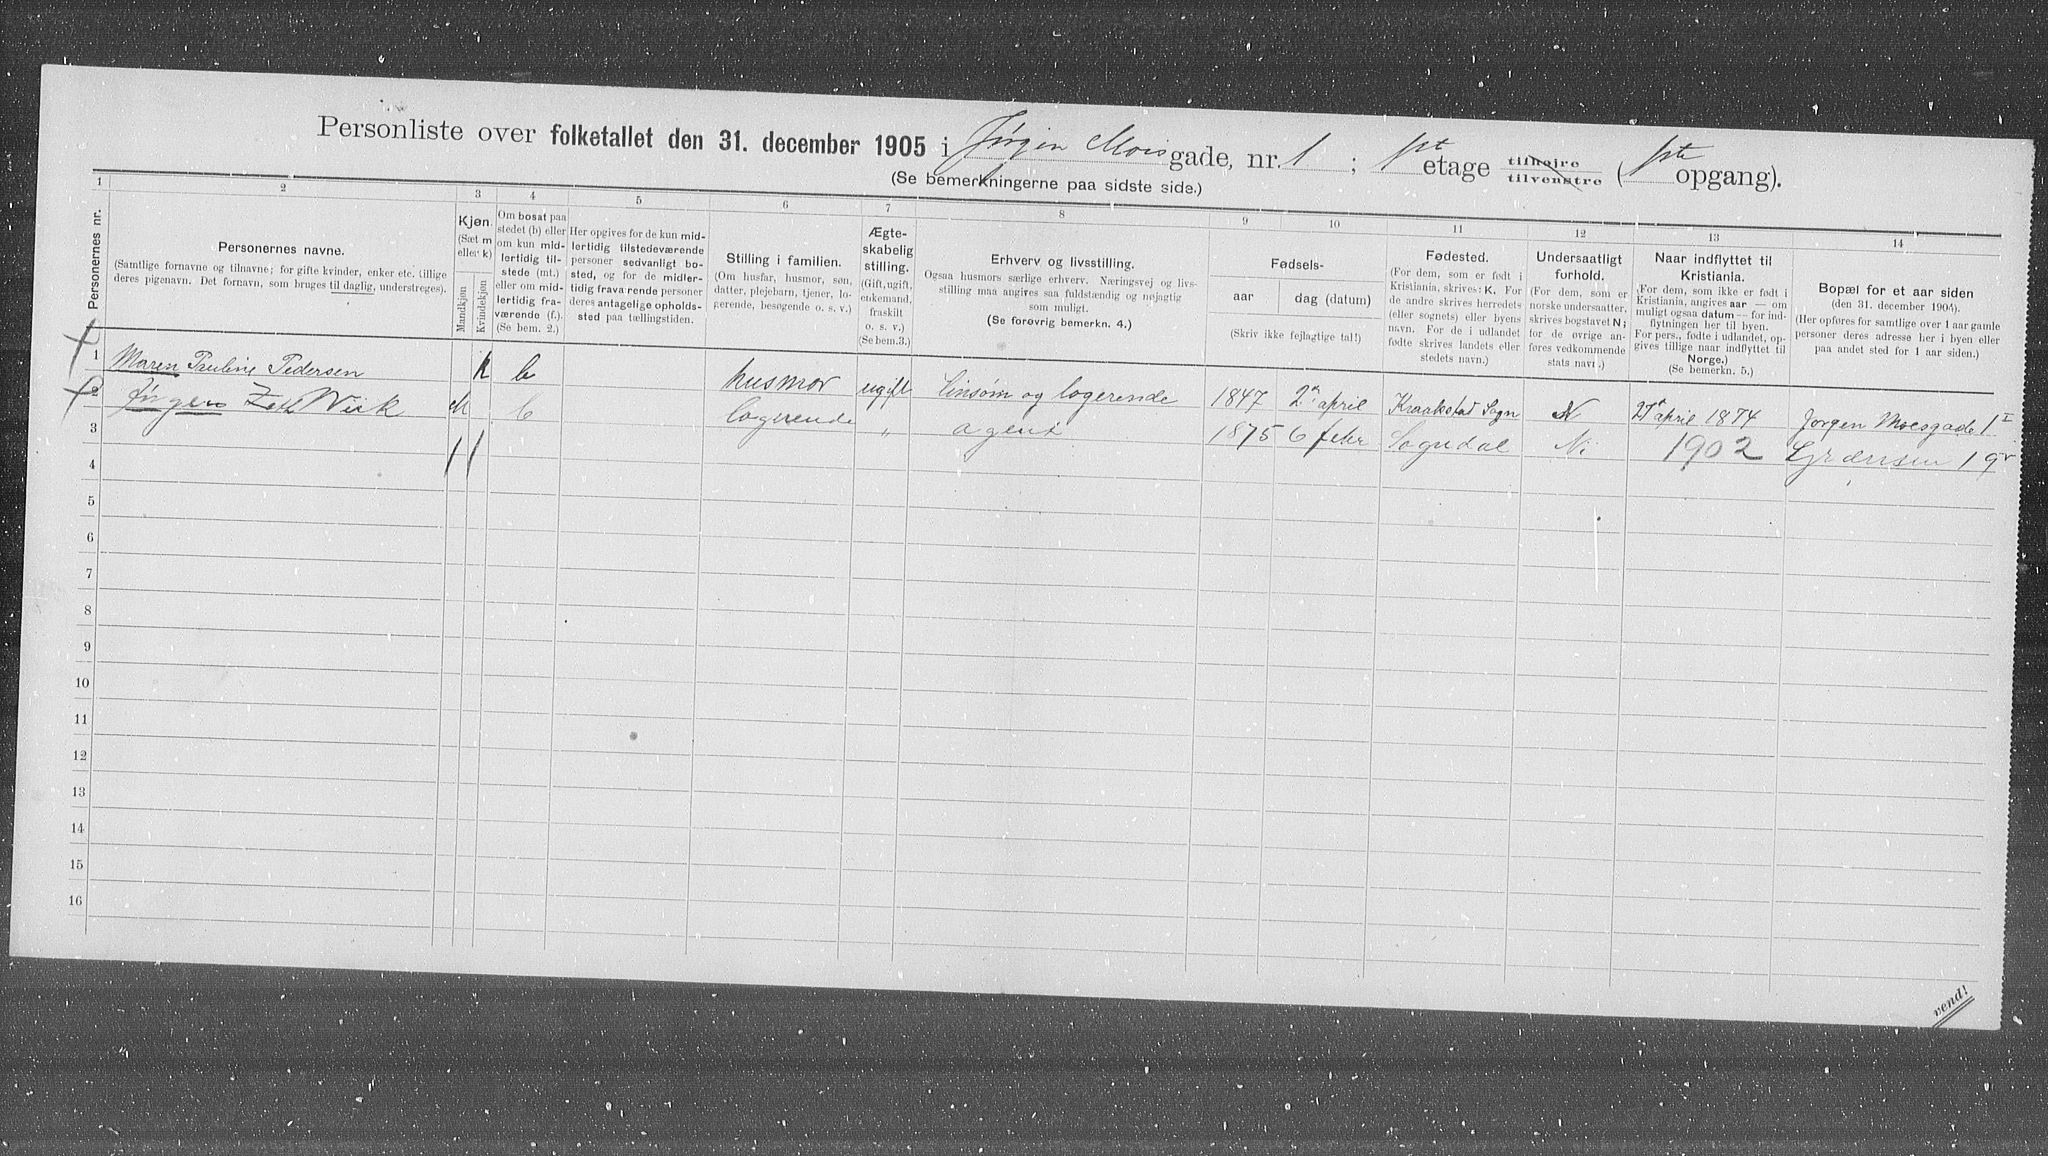 Personliste over folketallet den 31. december 1905 i Jørgen Moisgade, nr. 1 ; 1st etage tilhøjre tilvenstre (1ste opgang).
(Se bemerkningerne paa sidste side.)
1 2 3 4 5 6 7 8 9 10 11 12 13 14
Personernes nr.
Personernes navne.
(Samtlige fornavne og tilnavne; for gifte kvinder, enker etc. tillige
deres pigenavn. Det fornavn, som bruges til daglig, understreges).
Kjøn.
(Sæt m
eller k)
Mandkjøn
Kvindekjøn
Om bosat paa
stedet (b) eller
om kun mid-
lertidig til-
stede (mt.)
eller om mid-
lertidig fra-
værende (f.).
(Se bem. 2.)
Her opgives for de kun mid-
lertidig tilstedeværende
personer sedvanligt bo-
sted, og for de midler-
tidig fraværende personer
deres antagelige opholds-
sted paa tællingstiden.
Stilling i familien.
(Om husfar, husmor, søn,
datter, plejebarn, tjener, lo-
gerende, besøgende o. s. v.)
Ægte-
skabelig
stilling.
(Gift, ugift,
enkemand,
fraskilt
o. s. v.)
(Se bem. 3.)
Erhverv og livsstilling.
Ogsaa husmors særlige erhverv. Næringsvej og livs-
stilling maa angives saa fuldstændig og nøjagtig
som muligt.
(Se forøvrig bemerkn. 4.)
Fødsels-
aar
dag (datum)
(Skriv ikke fejlagtige tal!)
Fødested.
(For dem, som er født i
Kristiania, skrives: K. For
de andre skrives herredets
(eller sognets) eller byens
navn. For de i udlandet
fødte skrives landets eller
stedets navn.)
Undersaatligt
forhold.
(For dem, som er
norske undersaatter,
skrives bogstavet N;
for de øvrige an-
føres vedkommende
stats navn.)
Naar indflyttet til
Kristiania.
(For dem, som ikke er født i
Kristiania, angives aar — om
muligt ogsaa datum — for ind-
flytningen her til byen.
For pers., fødte i udlandet, op-
gives tillige naar indflyttet til
Norge.)
(Se bemerkn. 5.)
Bopæl for et aar siden
(den 31. december 1904).
(Her opføres for samtlige over 1 aar gamle
personer deres adresse her i byen eller
paa andet sted for 1 aar siden.)
1 Maren Pauline Pedersen k b husmor ugift linsøm og logerende 1847 2n april Kraakstad Sogn N 27 april 1874 Jørgen Moesgade 1 I
2 Jørgen Wiik M b logerende " agent 1875 6 febr Sogndal N. 1902 Grænsen 19
3
4
5
6
7
8
9
10
11
12
13
14
15
16
vend!